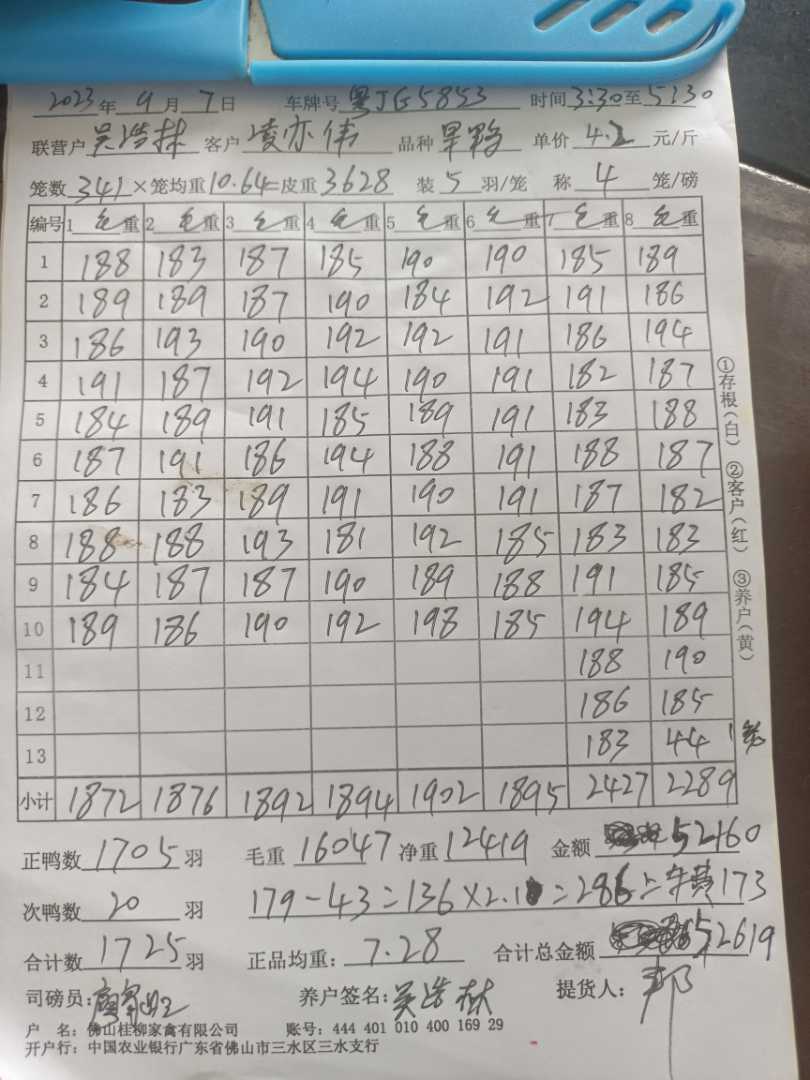 2023年9月7日 车牌号 粤JG5853 时间3:30至5:30
联营户吴浩林 客户凌亦伟 品种旱鸭 单价4.2元/斤
笼数341×笼均重10.64=皮重3628 装5羽/笼 称4笼/磅
编号 1毛重 2毛重 3毛重 4毛重 5毛重 6毛重 7毛重 8毛重
1 188 183 187 185 190 190 185 189
2 189 189 187 190 184 192 191 186
3 186 193 190 192 192 191 186 194
4 191 187 192 194 190 191 182 187
5 184 189 191 185 189 191 183 188
6 187 191 186 194 188 191 188 187
7 186 183 189 191 190 191 187 182
8 188 188 193 181 192 185 183 183
9 184 187 187 190 189 188 191 185
10 189 186 190 192 198 185 194 189
11 188 190
12 186 185
13 183 44 1笼
小计 1872 1876 1892 1894 1902 1895 2427 2289
①存根(白) ②客户(红) ③养户(黄)
正鸭数1705羽 毛重16047 净重12419 金额52160
次鸭数20羽 179-43=136×2.1=286=车费173
合计数1725羽 正品均重:7.28 合计总金额52619
司磅员: 养户签名:吴浩林 提货人:邦
户 名:佛山桂柳家禽有限公司 账号:444 401 010 400 169 29
开户行:中国农业银行广东省佛山市三水区三水支行